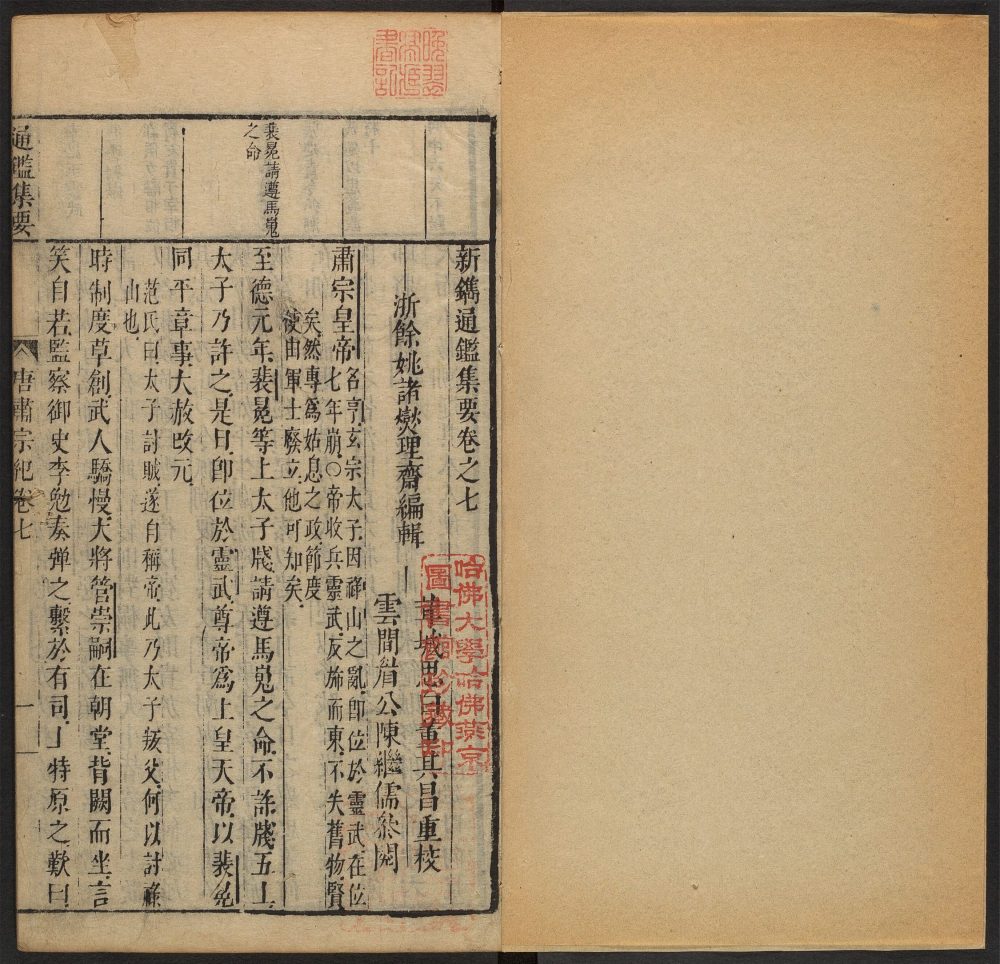 新鐫通鑑集要卷之七
浙餘姚諸爕理齋編輯
華城思白董其昌重校
雲間眉公陳繼儒叅閱
肅宗皇帝名亨玄宗太子因祿山之亂卽位於靈武在位
七年崩○帝收兵靈武反斾而東不失舊物賢
矣然專爲姑息之政節度
使由軍士廢立他可知矣
裴冕請遵馬嵬
之命
至德元年裴冕等上太子牋請遵馬嵬之命不許牋五上
太子乃許之是日卽位於靈武尊帝爲上皇天帝以裴冕
同平章事大赦改元
范氏曰太子討賊遂自稱帝此乃太子叛父何以討祿
山也
時制度草創武人驕慢大將管崇嗣在朝堂背闕而坐言
笑自若監察御史李勉奏彈之繫於有司上特原之歎曰
通鑑集要
唐肅宗紀卷七
一
哈佛大學哈佛燕京
圖書館珍藏印